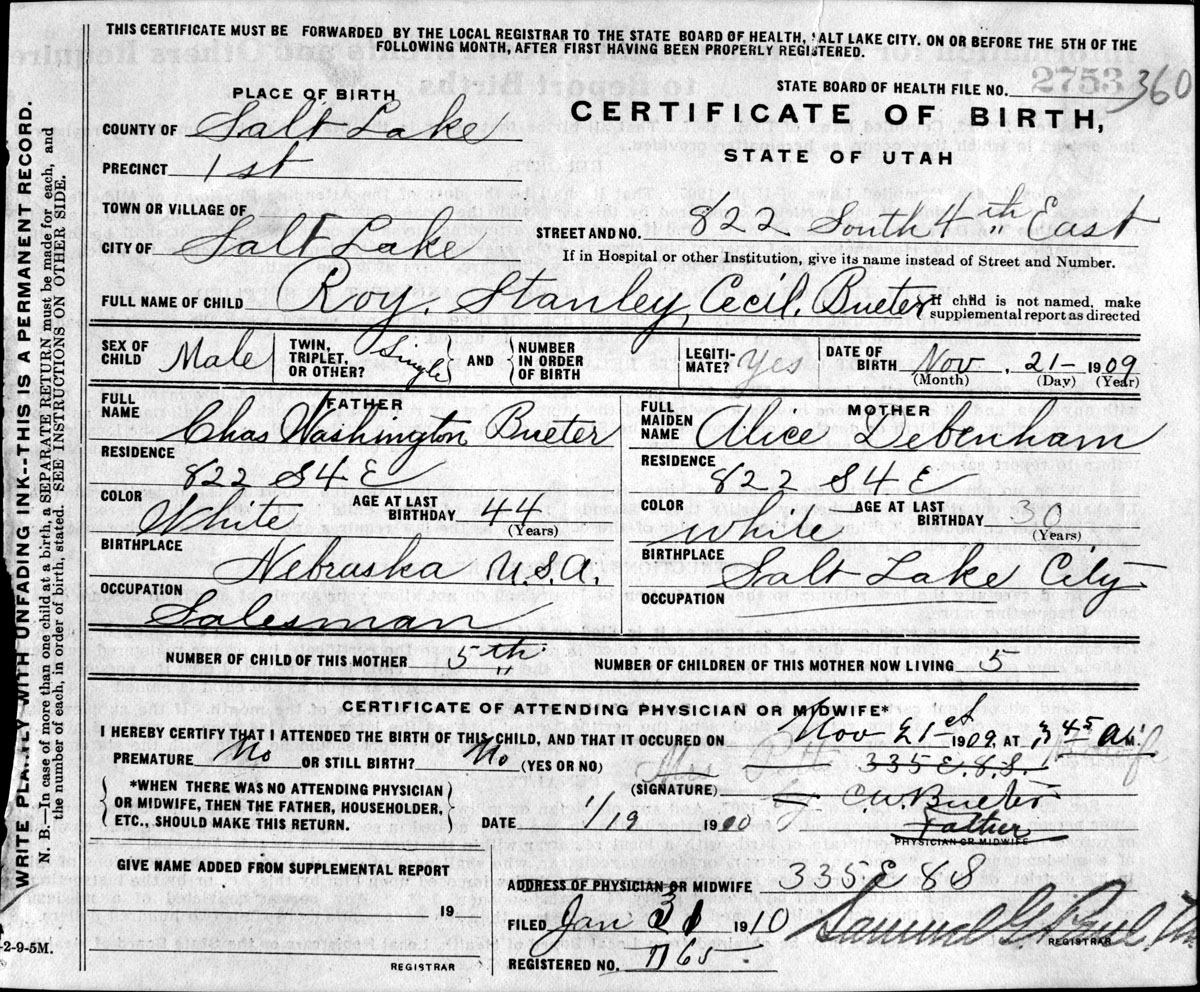 THIS CERTIFICATE MUST BE FORWARDED BY THE LOCAL REGISTRAR TO THE STATE BOARD OF HEALTH, SALT LAKE CITY. ON OR BEFORE THE 5TH OF THE
FOLLOWING MONTH, AFTER FIRST HAVING BEEN PROPERLY REGISTERED.
STATE BOARD OF HEALTH FILE NO. 2753 360
PLACE OF BIRTH
CERTIFICATE OF BIRTH,
STATE OF UTAH
COUNTY OF Salt Lake
PRECINCT 1st
TOWN OR VILLAGE OF
CITY OF Salt Lake
STREET AND NO. 822 South 4th East
If in Hospital or other Institution, give its name instead of Street and Number.
FULL NAME OF CHILD Roy. Stanley, Cecil. Bueter { If child is not named, make
supplemental report as directed
SEX OF CHILD Male
TWIN, TRIPLET, OR OTHER? Single
AND
NUMBER IN ORDER OF BIRTH
LEGITI-MATE? Yes
DATE OF BIRTH Nov, 21- 1909
(Month) (Day) (Year)
FATHER
FULL NAME Chas Washington Bueter
RESIDENCE 822 S 4 E
COLOR White
AGE AT LAST BIRTHDAY 44
(Years)
BIRTHPLACE Nebraska U.S.A.
OCCUPATION Salesman
MOTHER
FULL MAIDEN NAME Alice Debenham
RESIDENCE 822 S 4 E
COLOR White
AGE AT LAST BIRTHDAY 30
(Years)
BIRTHPLACE Salt Lake City
OCCUPATION
NUMBER OF CHILD OF THIS MOTHER 5th
NUMBER OF CHILDREN OF THIS MOTHER NOW LIVING 5
CERTIFICATE OF ATTENDING PHYSICIAN OR MIDWIFE*
I HEREBY CERTIFY THAT I ATTENDED THE BIRTH OF THIS CHILD, AND THAT IT OCCURED ON Nov 21st 1909, AT 3 45 A M.
PREMATURE No OR STILL BIRTH? No (YES OR NO)
Mrs 335 E. 8 S.
*WHEN THERE WAS NO ATTENDING PHYSICIAN
OR MIDWIFE, THEN THE FATHER, HOUSEHOLDER,
ETC., SHOULD MAKE THIS RETURN.
(SIGNATURE) by C.W. Bueter
Father
PHYSICIAN OR MIDWIFE
DATE 1/19 1910
GIVE NAME ADDED FROM SUPPLEMENTAL REPORT
19
REGISTRAR
ADDRESS OF PHYSICIAN OR MIDWIFE 335 E 8 S
FILED Jan 31 1910
Samuel G. Paul,
REGISTRAR
REGISTERED NO. 1765
WRITE PLAINLY WITH UNFADING INK--THIS IS A PERMANENT RECORD.
N. B.—In case of more than one child at a birth, a SEPARATE RETURN must be made for each, and
the number of each, in order of birth, stated. SEE INSTRUCTIONS ON OTHER SIDE.
-2-9-5M.